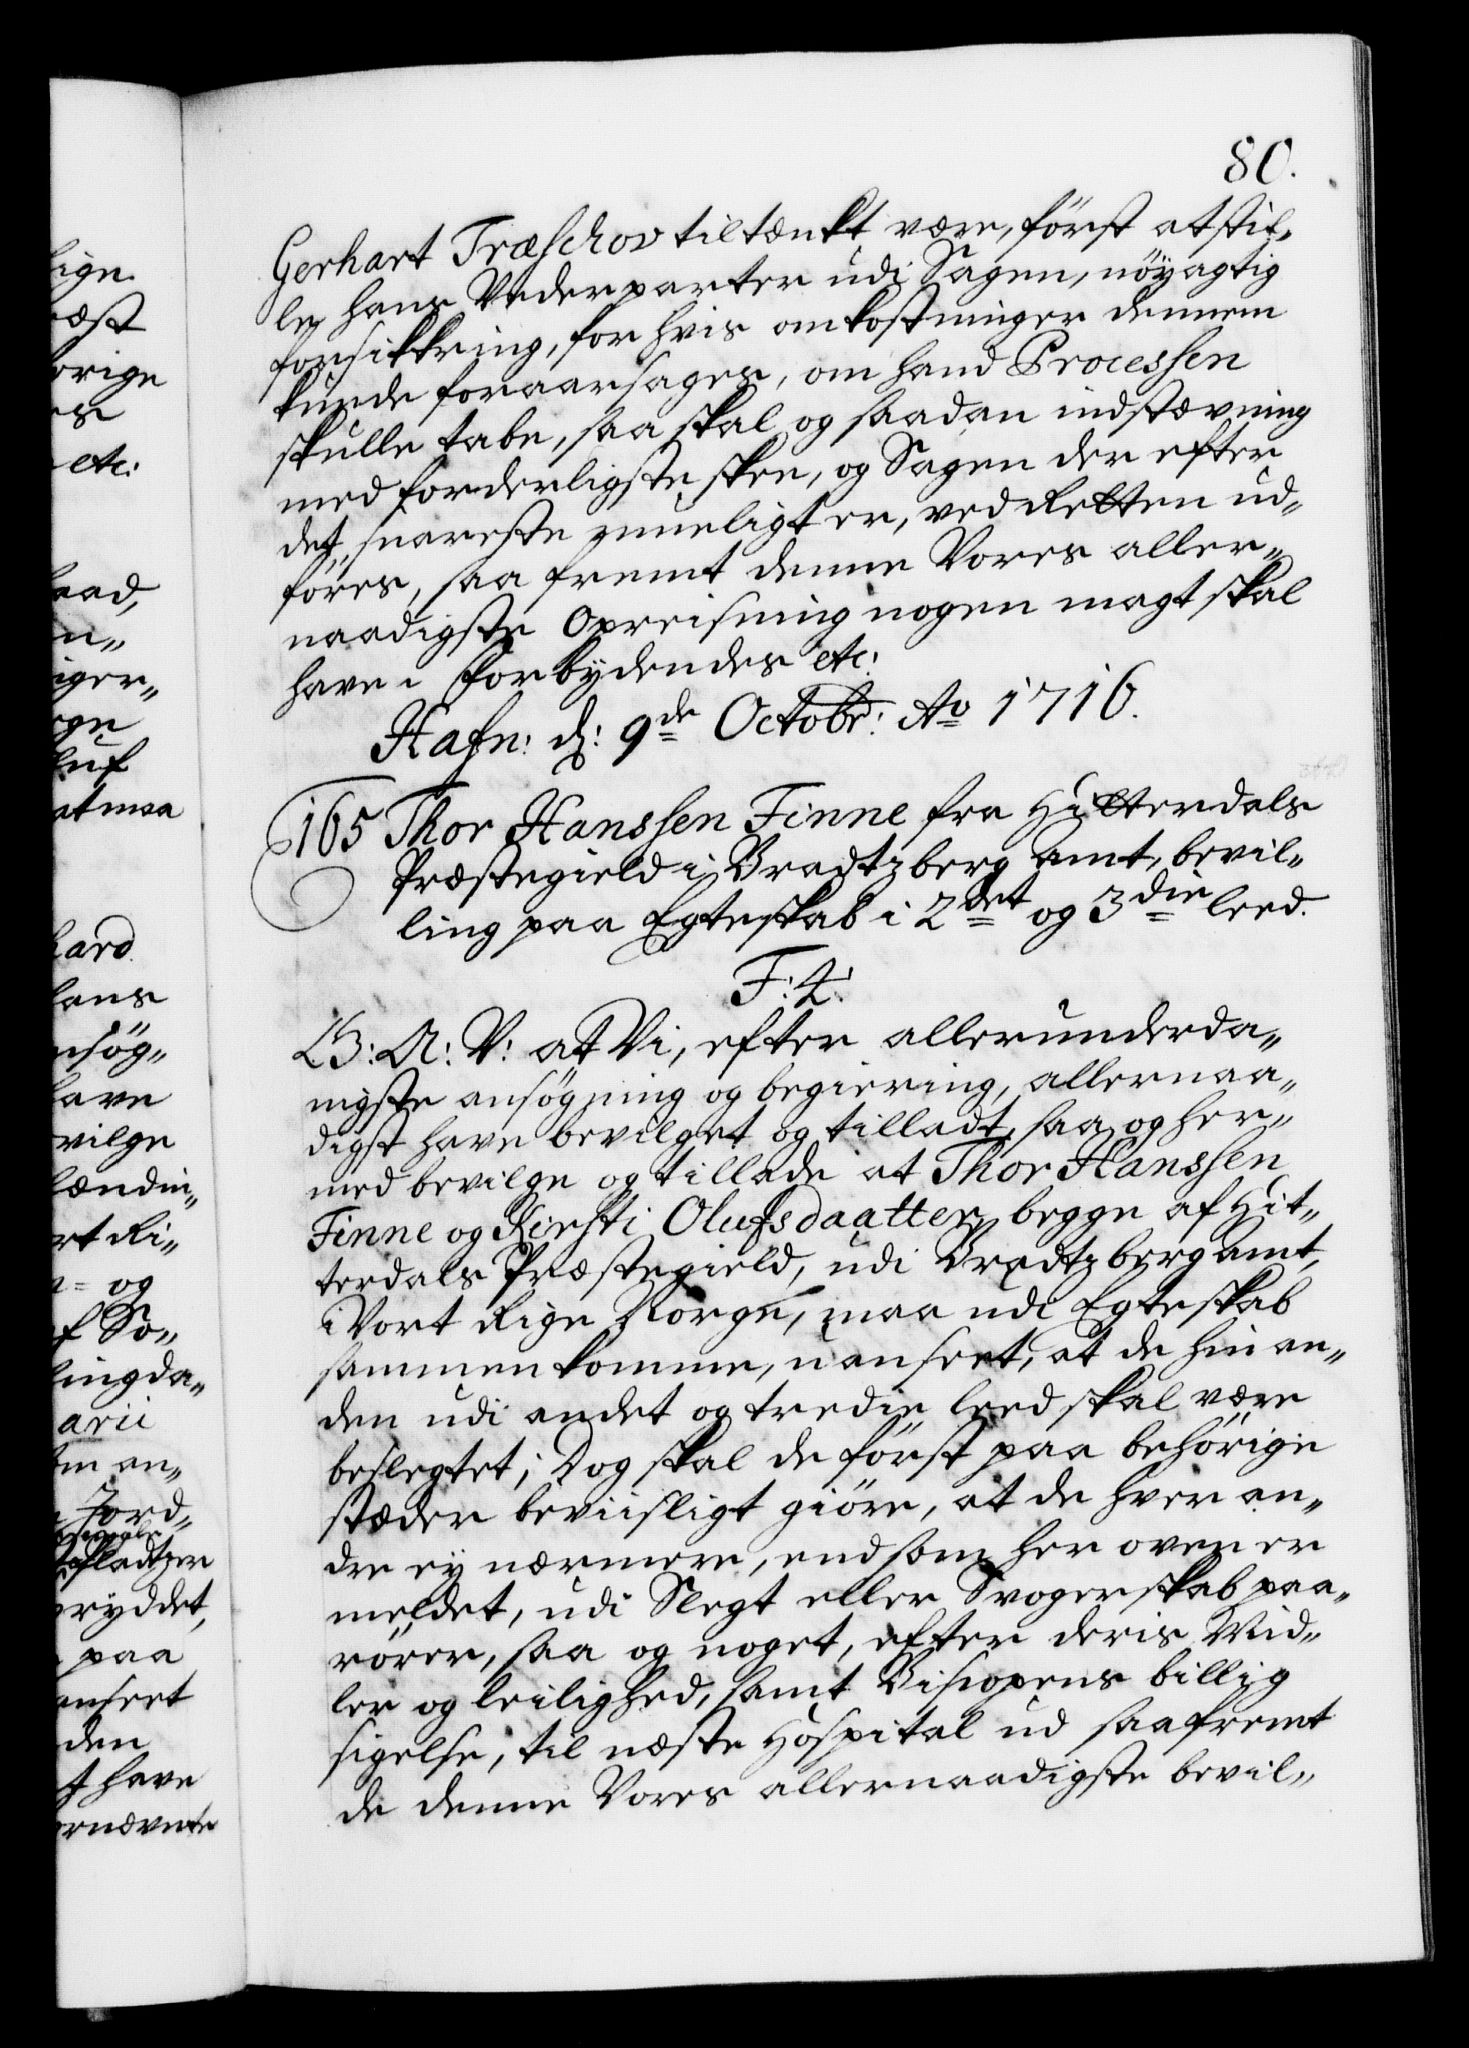 80.
Gerhart Træschov tiltænkt være, först at stil„
le hans Vederparter udi Sagen, nöyagtig
forsikkring, for hvis omkostninger dennem
kunde foraarsages, om hand Processen
skulle tabe, saa skal og saadan indstævning
med forderligste skee, og Sagen der efter
det snareste mueligt er, ved Retten ud„
föres, saa fremt denne Vores aller„
naadigste Opreisning nogen magt skal
have. Forbydendes etc:
Hafn: d: 9de Octobr: Ao 1716.
165 Thor Hanssen Finne fra Hitterdals
Præstegield i Bradtzberg Amt, bevil„
ling paa Egteskab i 2det og 3die leed.
F: 4.
G: A: V: at Vi, efter allerunderda„
nigste ansögning og begiering, allernaa„
digst have bevilget og tilladt, saa og her„
med bevilge og tillade at Thor Hanssen
Finne og Kirsti Olufsdaatter, begge af Hit„
terdals Præstegield, udi Bradtzberg Amt,
i Vort Rige Norge, maa udi Egteskab
sammenkomme, uanseet, at de hin an„
den udi andet og tredie leed skal være
beslegtet; Dog skal de först paa behörige
stæder beviisligt giöre, at de hver an„
dre ey nærmere, end som her oven er
meldet, udi Slegt eller Svogerskab paa„
rörer, saa og noget, efter deris Mid„
ler og leilighed, samt Bispens billig
sigelse, til næste Hospital ud saafremt
de denne Vores allernaadigste bevil„